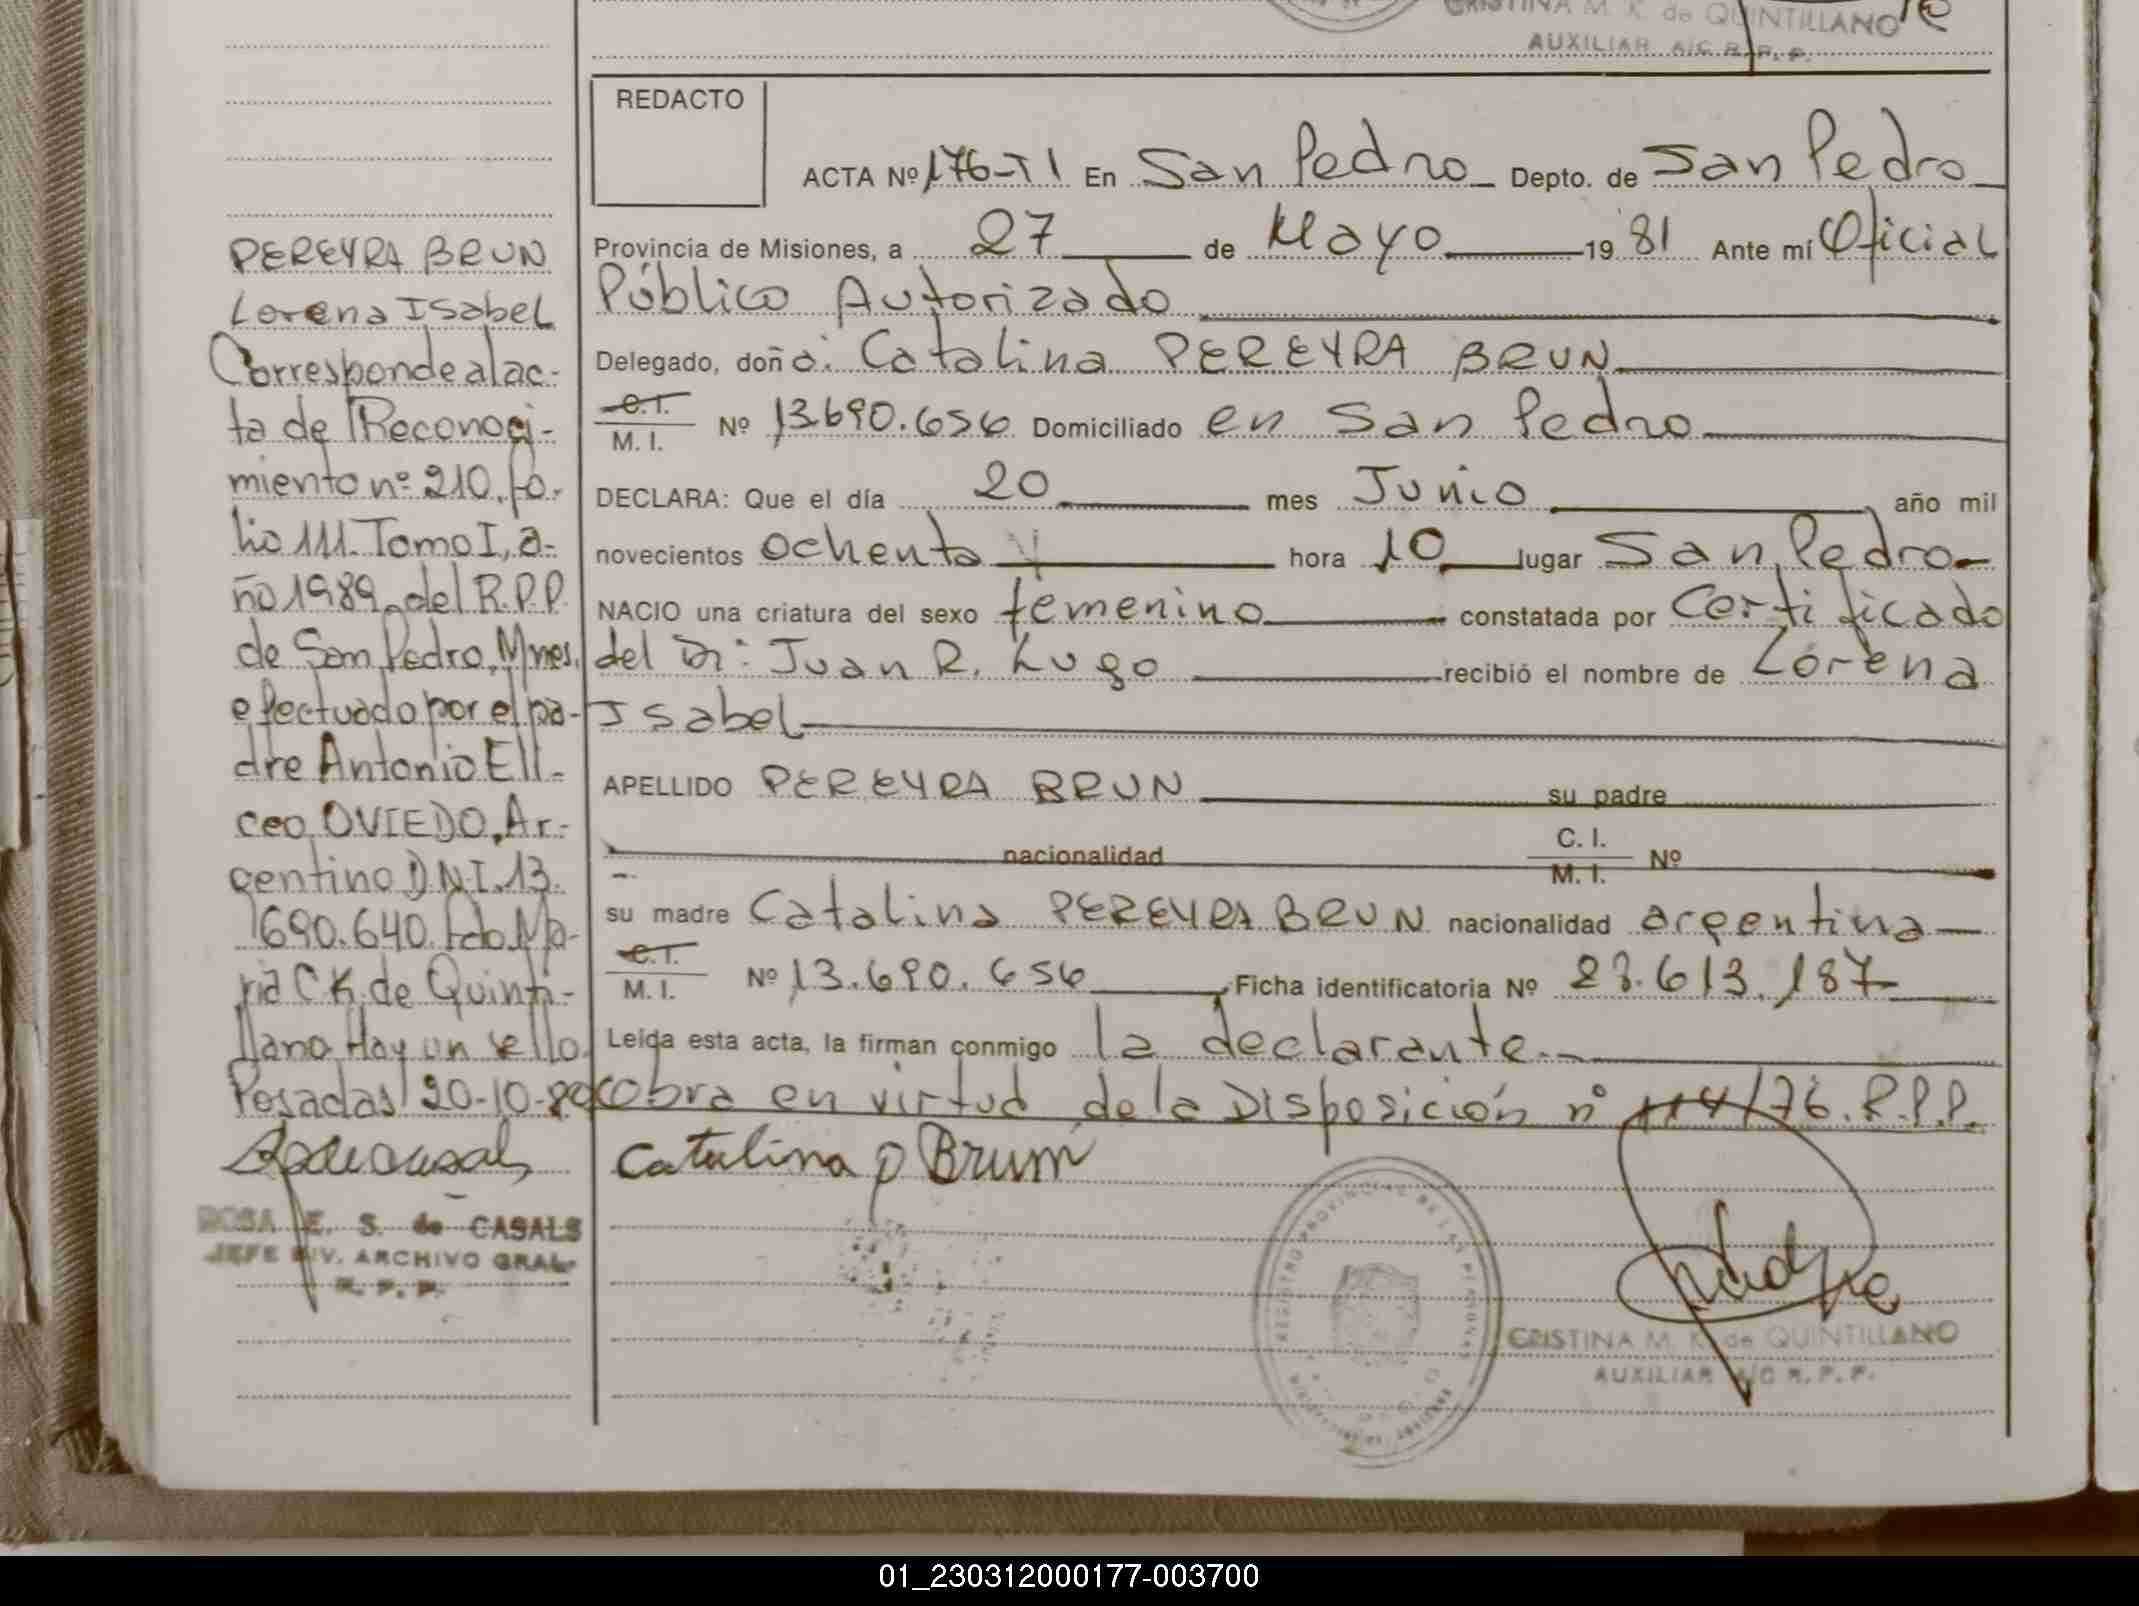 CRISTINA M. K. de QUINTILLANO
AUXILIAR A/C R. P. P.
REDACTO
ACTA Nº 176-TI En San Pedro Depto. de San Pedro
Provincia de Misiones, a 27 de Mayo 19 81 Ante mí Oficial
Público Autorizado
Delegado, doña: Catalina PEREYRA BRUN
C.I. M. I. Nº 13.690.656 Domiciliado en San Pedro
DECLARA: Que el día 20 mes Junio año mil
novecientos ochenta hora 10 lugar San Pedro
NACIO una criatura del sexo femenino constatada por Certificado
del Dr: Juan R. Lugo recibió el nombre de Lorena
Isabel
APELLIDO PEREYRA BRUN su padre
nacionalidad C. I. M. I. Nº
su madre Catalina PEREYRA BRUN nacionalidad argentina
C.I. M. I. Nº 13.690.656 Ficha identificatoria Nº 28.613.187
Leída esta acta, la firman conmigo la declarante
obra en virtud de la Disposición nº 114/76. R.P.P.
Catalina p Brum
CRISTINA M. K. de QUINTILLANO
AUXILIAR A/C R. P. P.
PEREYRA BRUN
Lorena Isabel
Corresponde al ac-
ta de Reconoci-
miento nº 210, fo-
lio 111. Tomo I, a-
ño 1989, del R.P.P.
de San Pedro, Mnes.
efectuado por el pa-
dre Antonio Eli-
ceo OVIEDO, Ar-
gentino D.N.I. 13.
690.640. Fdo. Ma-
ria C K. de Quinti-
llano. Hay un sello.
Posadas 20-10-89
ROSA E. S. de CASALS
JEFE DIV. ARCHIVO GRAL.
R. P. P.
01_230312000177-003700